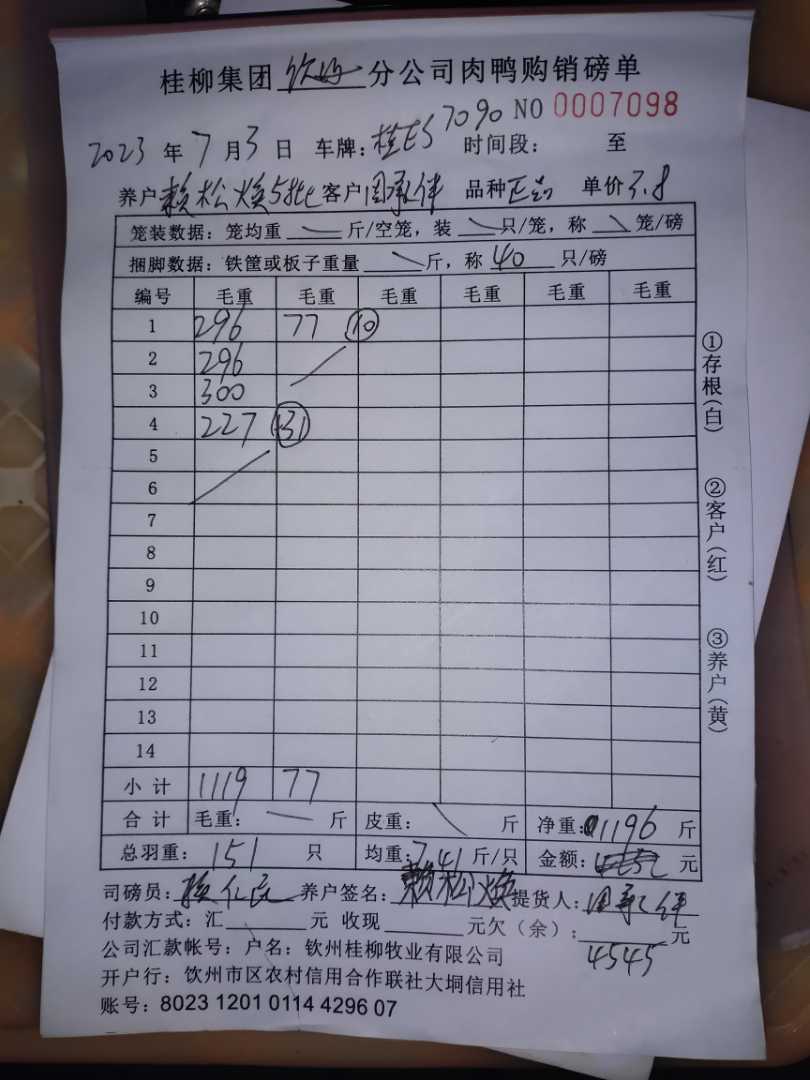 桂柳集团 钦州 分公司肉鸭购销磅单
2023 年 7 月 3 日 车牌: 桂ES7090 NO 0007098
时间段: 至
养户 赖松焕5批 客户 周承伴 品种 正品 单价 3.8
笼装数据: 笼均重 斤/空笼, 装 只/笼, 称 笼/磅
捆脚数据: 铁筐或板子重量 斤, 称 40 只/磅
编号 毛重 毛重 毛重 毛重 毛重 毛重
1 296 77 10
2 296
3 300
4 227 31
5
6
7
8
9
10
11
12
13
14
小计 1119 77
合计 毛重: 斤 皮重: 斤 净重: 1196 斤
总羽重: 151 只 均重: 7.41 斤/只 金额: 元
司磅员: 养户签名: 赖松焕 提货人: 周承伴
付款方式: 汇 元 收现 元欠(余): 元
4545
公司汇款帐号: 户名: 钦州桂柳牧业有限公司
开户行: 钦州市区农村信用合作联社大垌信用社
账号: 8023 1201 0114 4296 07
①存根(白)
②客户(红)
③养户(黄)